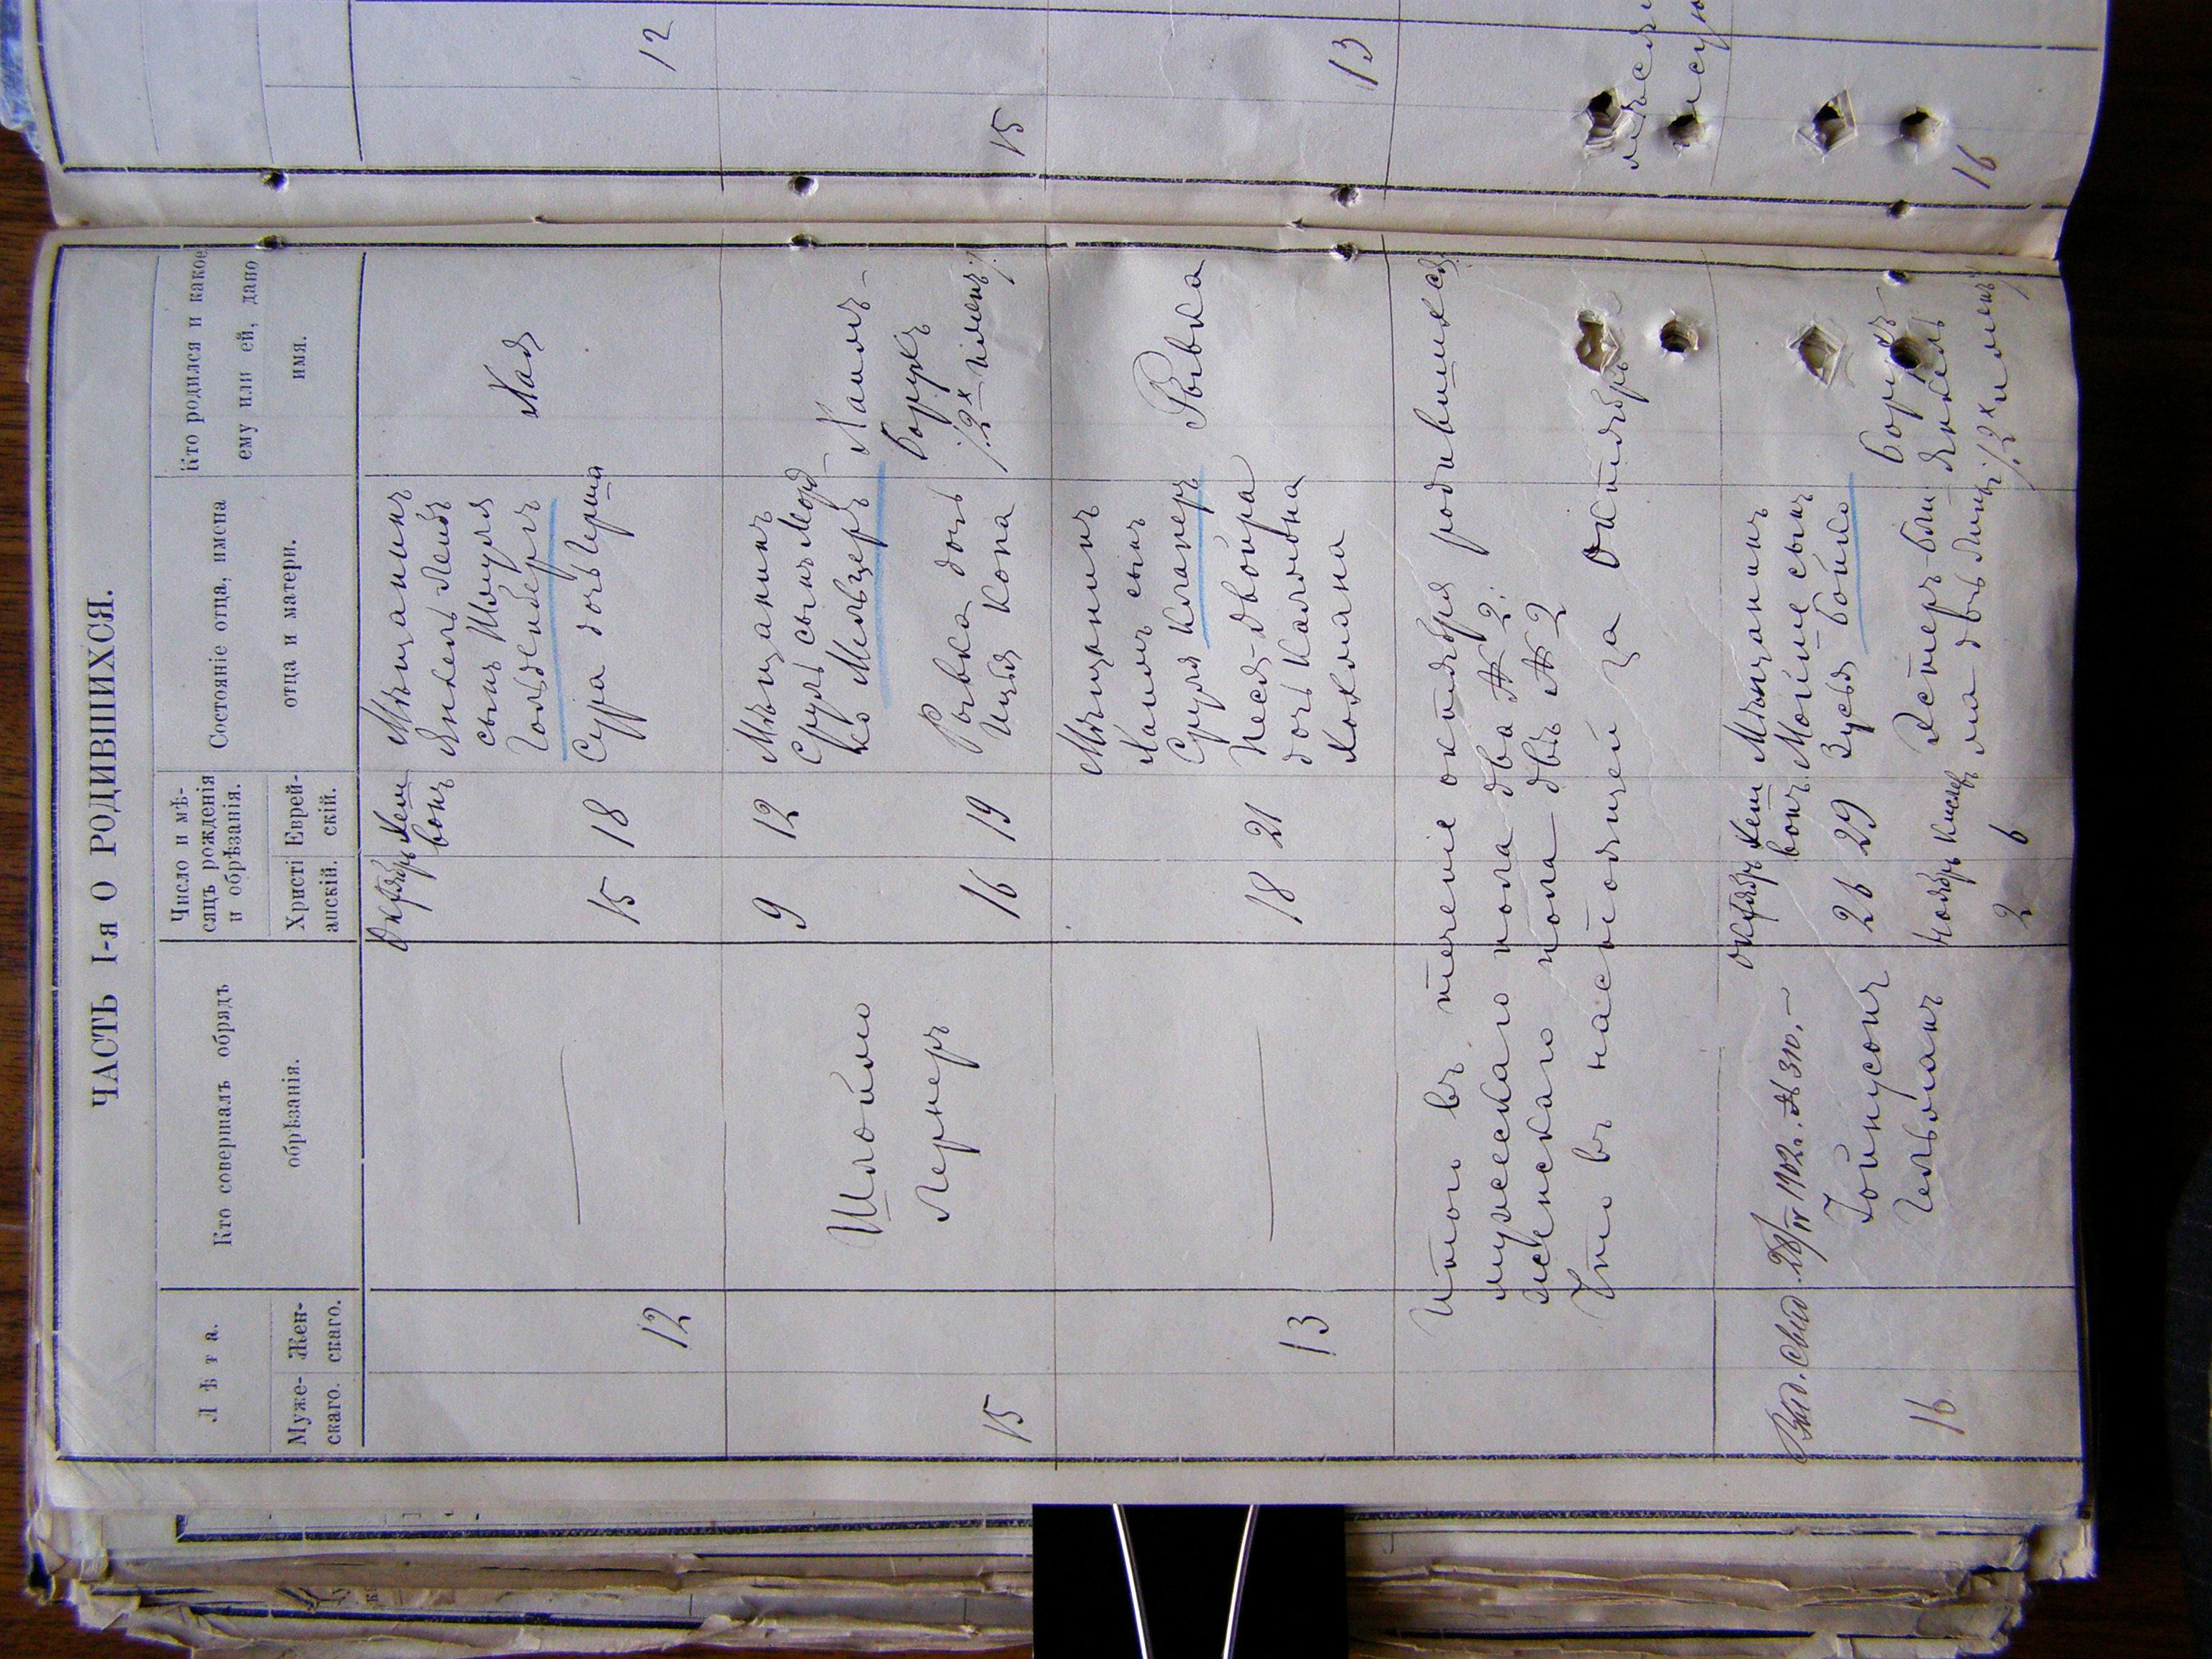 ЧАСТЬ I-я О РОДИВШИХСЯ.
Лѣта.
Муже-
скаго.
Жен-
скаго.
Кто совершалъ обрядъ
обрѣзанія.
Число и мѣ-
сяцъ рожденія
и обрѣзанія.
Христі
анскій.
Еврей-
скій.
Состояніе отца, имена
отца и матери.
Кто родился и какое
ему или ей, дано
имя.
12
—
Октябрь
15
Хеш
вонъ
18
Мѣщанинъ
Янкель Лейбъ
сынъ Шмуля
Голденбергъ
Сура дочь Герша
Хая
15
Шлоймо
Лернеръ
9
12
16
19
Мѣщанинъ
Сруль сынъ Морд
ко Мельцеръ
Рывка дочь
Ицка Копа
Хаимъ-
Борухъ
/:2х именъ:/
13
—
18
21
Мѣщанинъ
Хаимъ сынъ
Сруля Клаперъ
Песя-Двойра
дочь Калмона
Хокмана
Рывка
Итого въ теченіе октября родившихся
мужескаго пола два № 2:
женскаго пола двѣ № 2
Что въ настоящей за Октябрь
Выд. свид. 28/IV 1902 г. № 310.—
16
Іойнусонъ
Гельманъ
октябрь
26
Хеш
вонъ
29
Ноябрь
2
Кислевъ
6
Мѣщанинъ
Мойше сынъ
Зуся Бойко
Эстеръ
Янкель
/:2х именъ:/
12
15
13
16